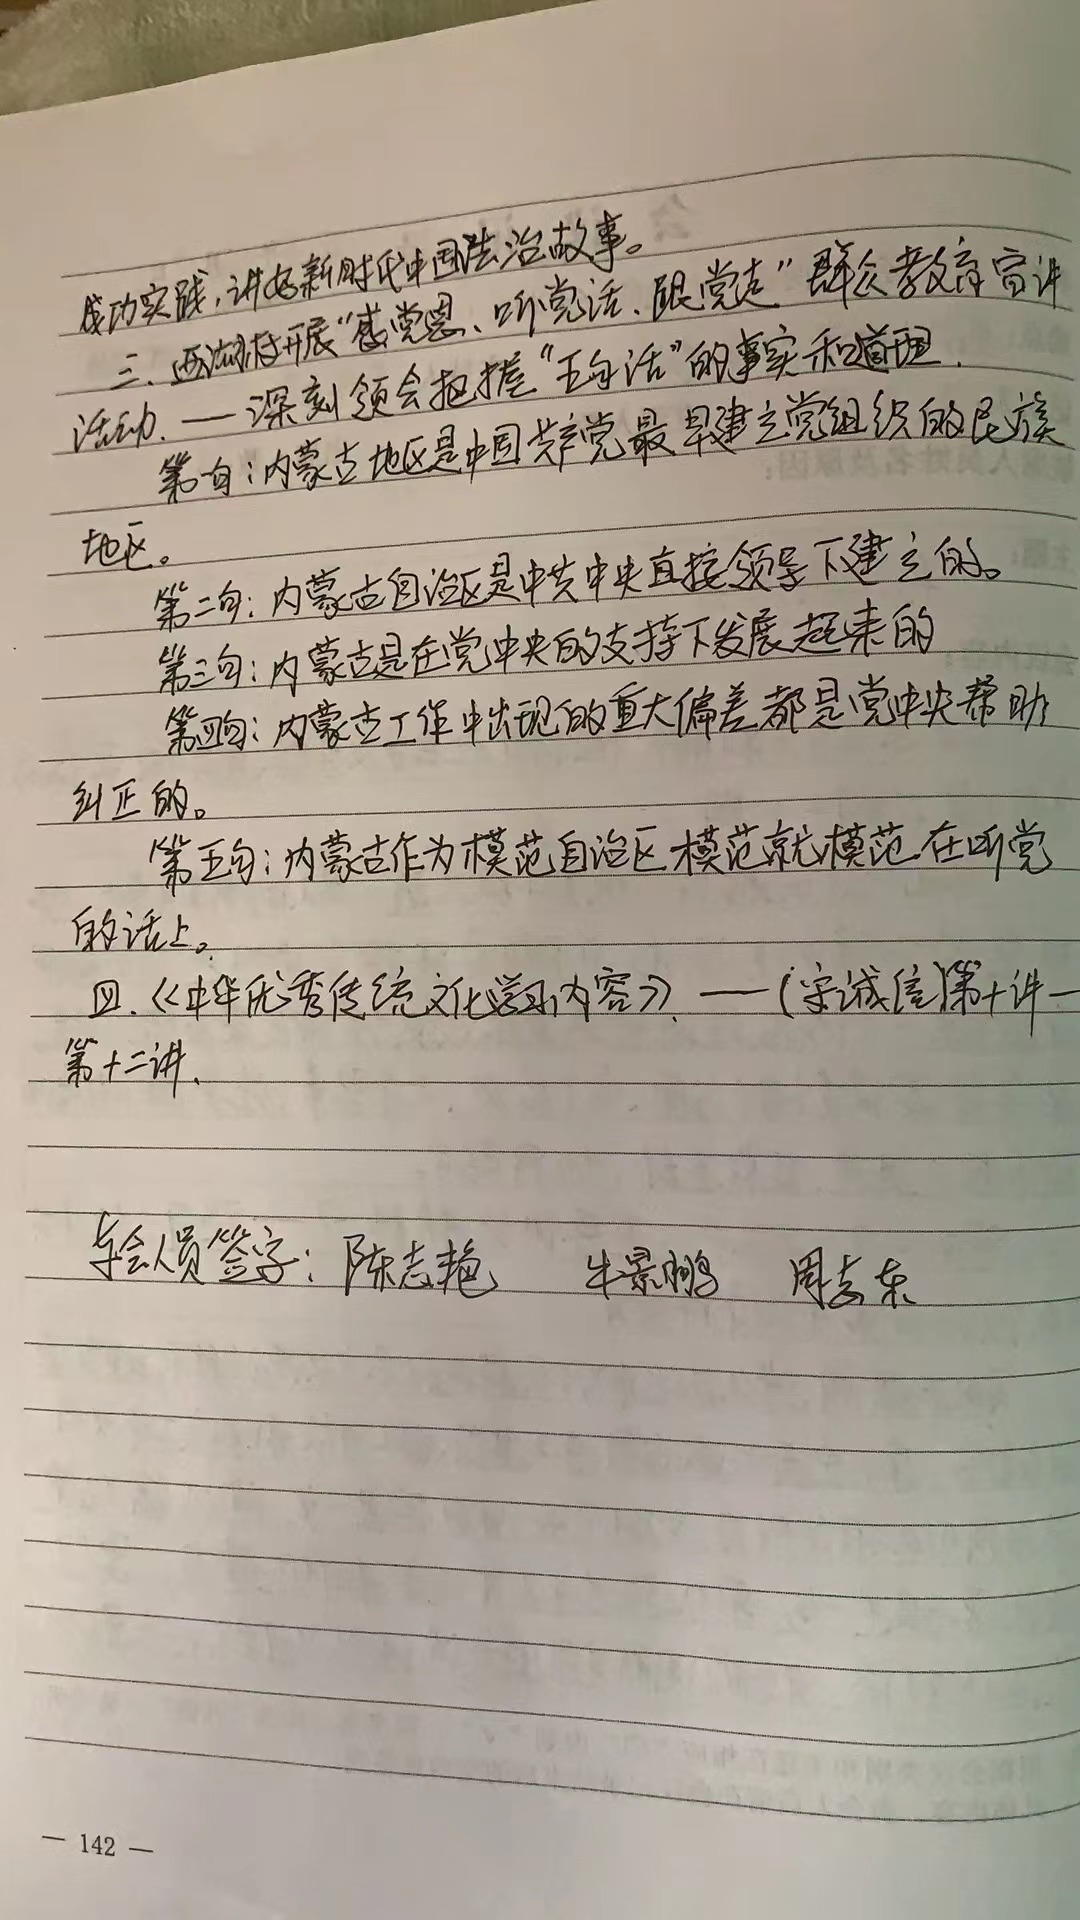 成功实践,讲好新时代中国法治故事。
三、西沟村开展“感党恩、听党话、跟党走”群众教育宣讲
活动.——深刻领会把握“五句话”的事实和道理.
第一句:内蒙古地区是中国共产党最早建立党组织的民族
地区。
第二句:内蒙古自治区是中共中央直接领导下建立的。
第三句:内蒙古是在党中央的支持下发展起来的
第四句:内蒙古工作中出现的重大偏差都是党中央帮助
纠正的。
第五句:内蒙古作为模范自治区模范就模范在听党
的话上。
四.《中华优秀传统文化学习内容》.——(守诚信)第十讲—
第十二讲.
与会人员签字:陈志艳 牛景鹏 周志东
— 142 —